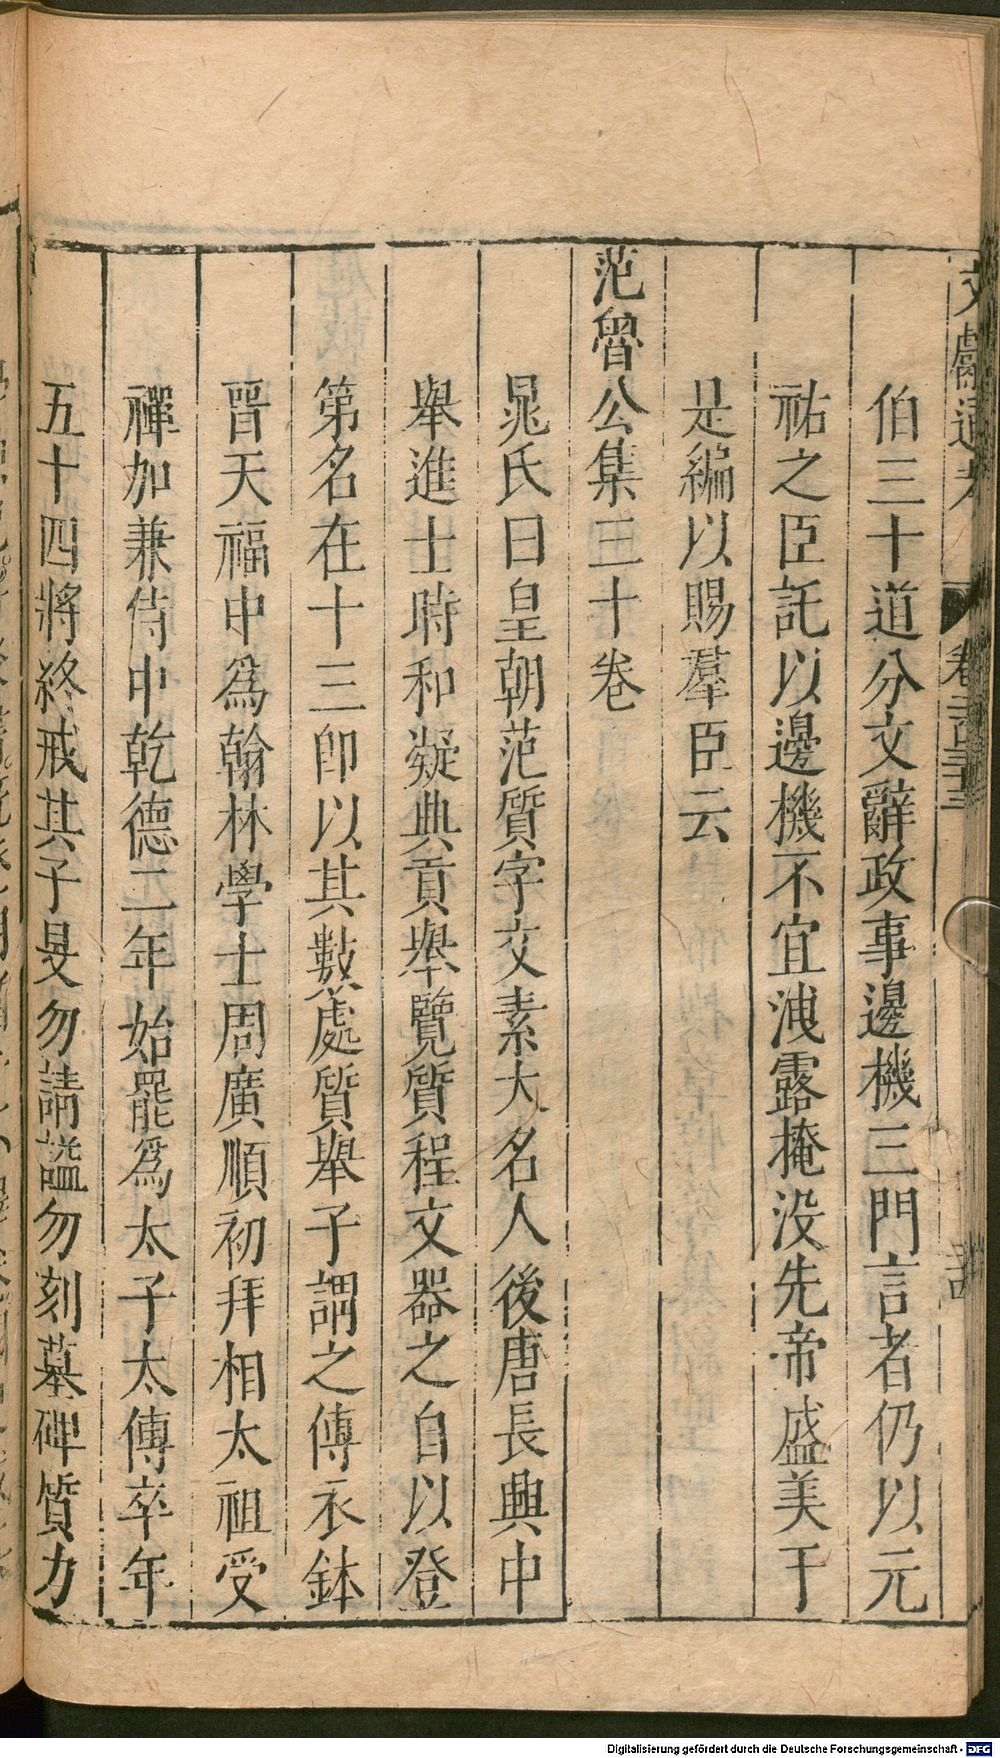 文獻通考
伯三十道分文辭政事邊機三門言者仍以元
祐之臣託以邊機不宜洩露掩没先帝盛美于
是編以賜羣臣云
范魯公集三十卷
晁氏曰皇朝范質字文素大名人後唐長興中
舉進士時和凝典貢舉覽質程文器之自以登
第名在十三卽以其數處質舉子謂之傳衣鉢
晋天福中爲翰林學士周廣順初拜相太祖受
禪加兼侍中乾德二年始罷爲太子太傅卒年
五十四將終戒其子旻勿請謚勿刻墓碑質力
Digitalisierung gefördert durch die Deutsche Forschungsgemeinschaft - DFG